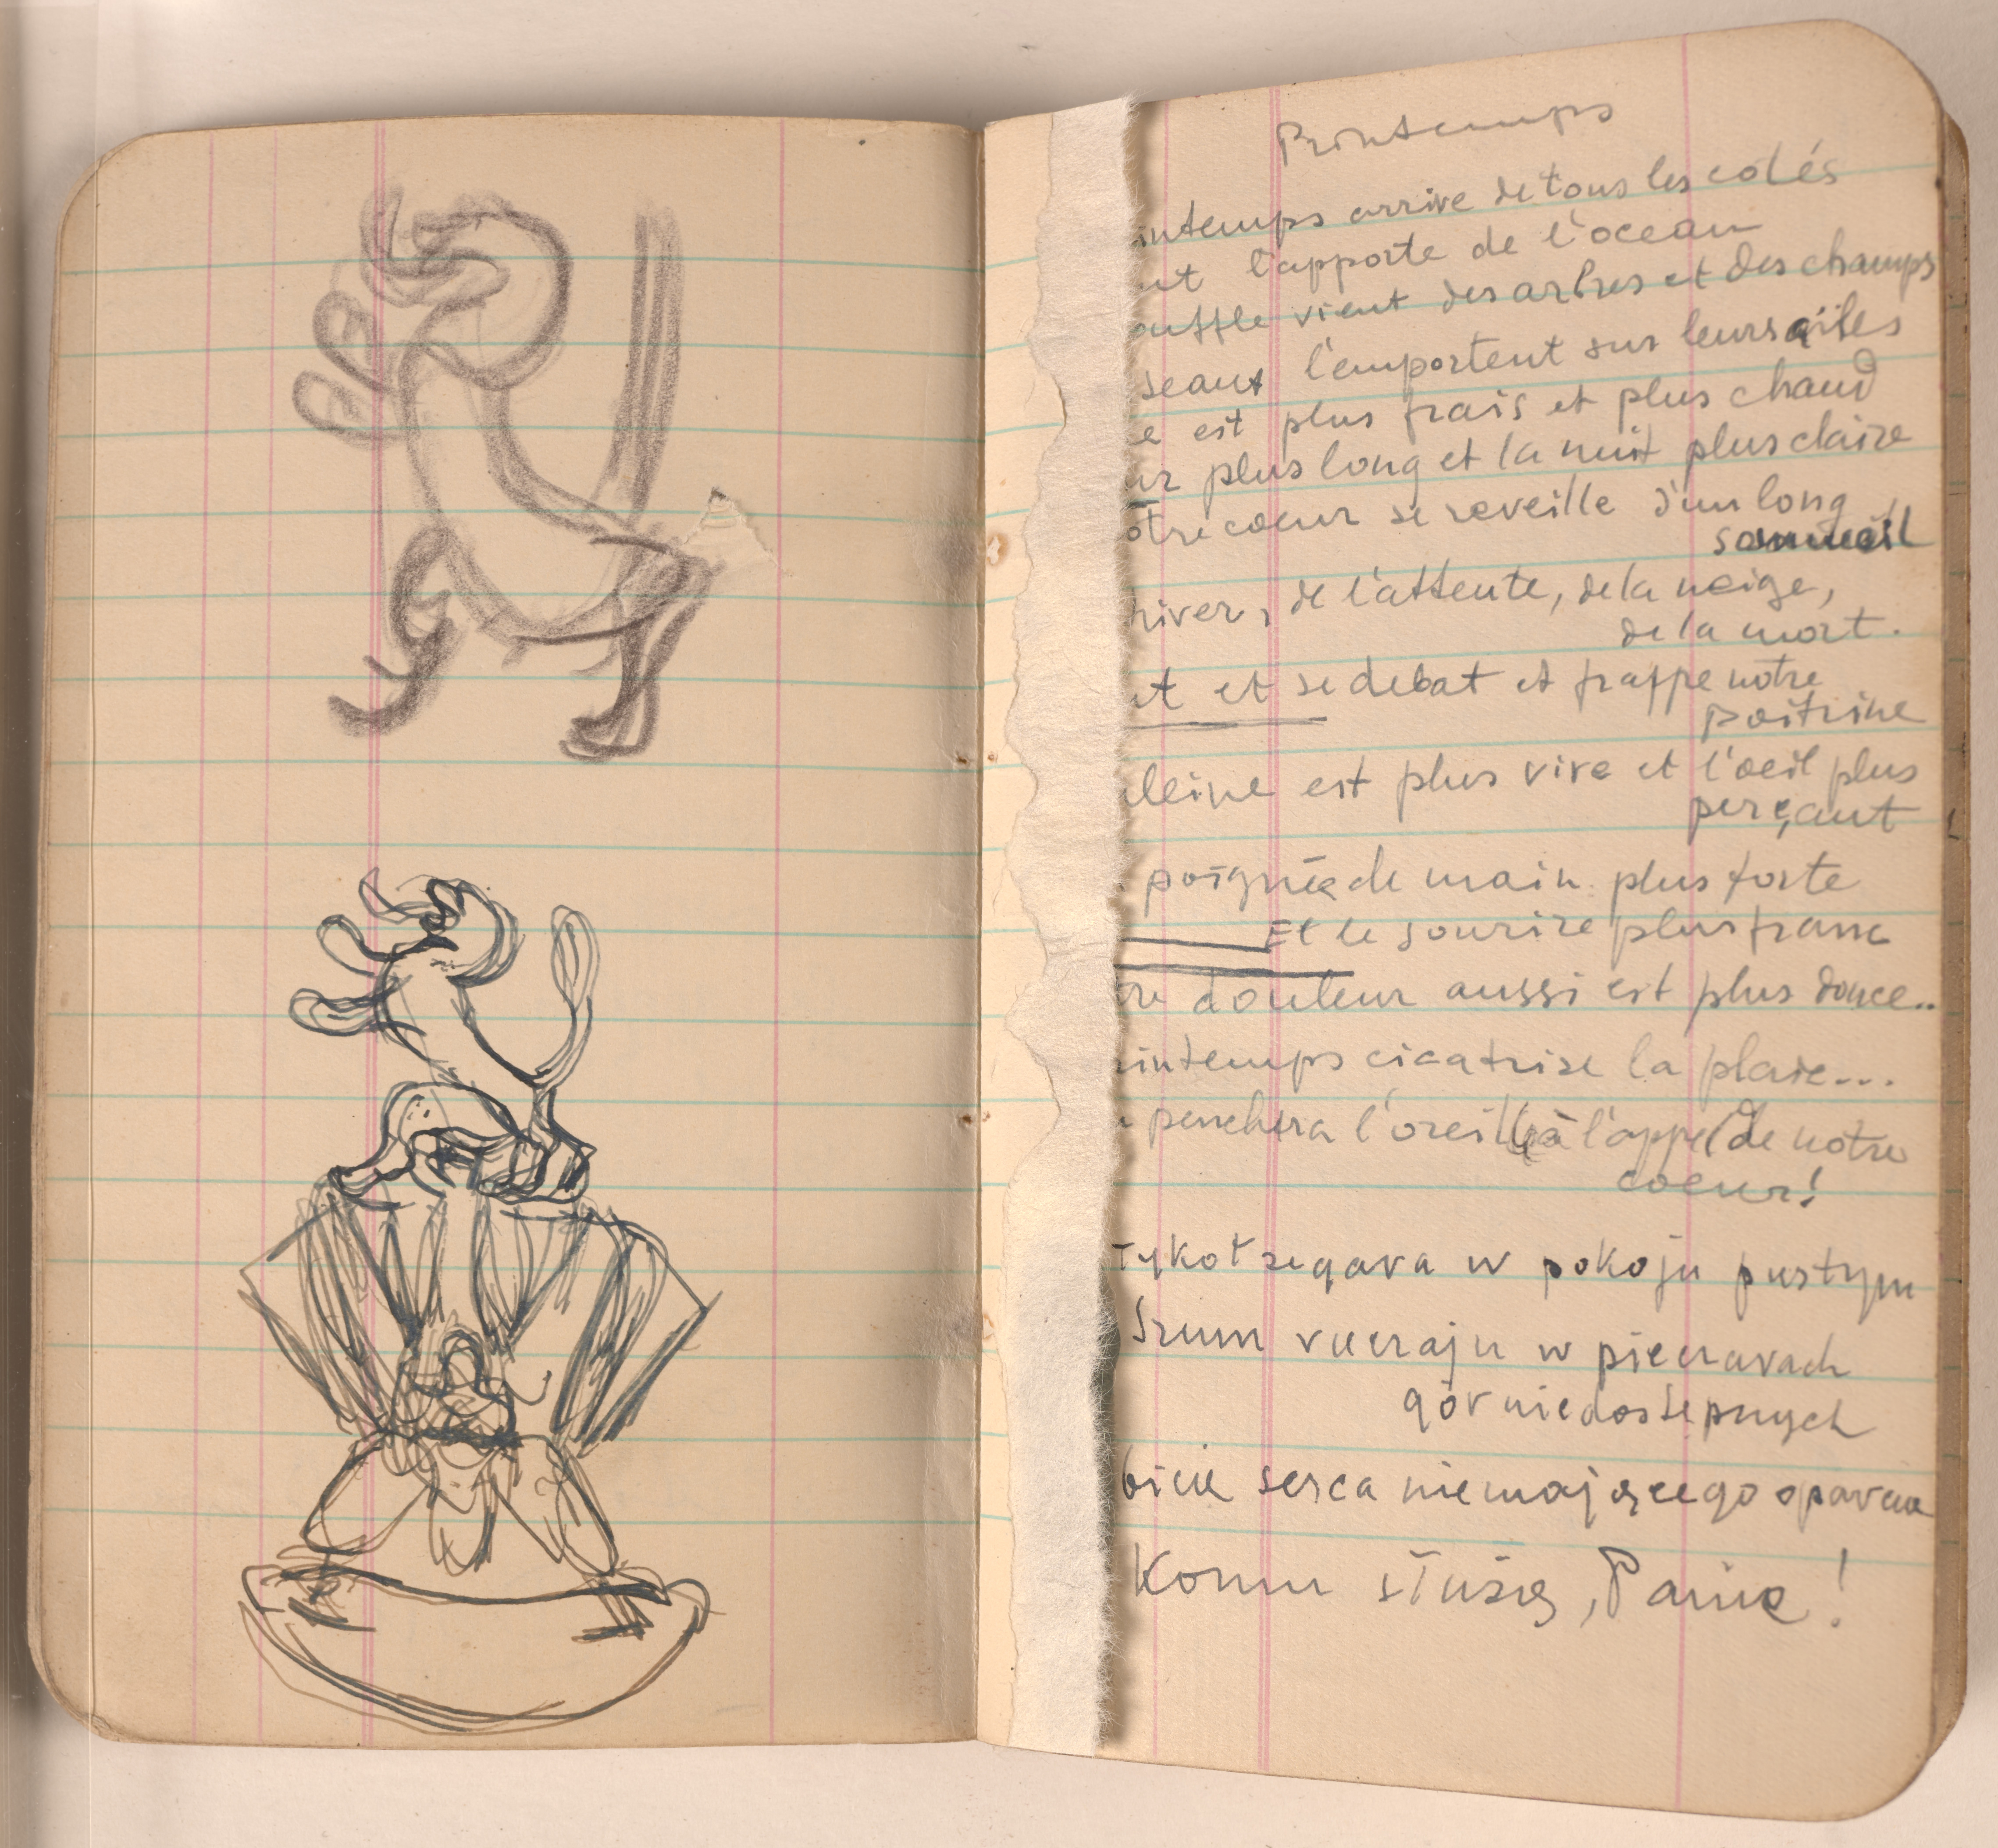 Printemps
intemps arrive de tous les cotés
nt l'apporte de l'ocean
ouffle vient des arbres et des champs
seaux l'emportent sur leurs ailes
e est plus frais et plus chaud
ur plus long et la nuit plus claire
otre coeur se reveille d'un long
sommeil
hiver, de l'attente, de la neige,
de la mort.
et se debat et frappe notre
poitrine
leine est plus vive et l'oeil plus
perçant
poignée de main plus forte
Et le sourire plus franc
re douleur aussi est plus douce..
rintemps cicatrise la plaie...
penchera l'oreille à l'appel de notre
coeur!
Tykot zegara w pokoju pustym
Szum w pieczarach
gór niedostępnych
bicie serca niemającego oparcia
Komu służą, Panie!